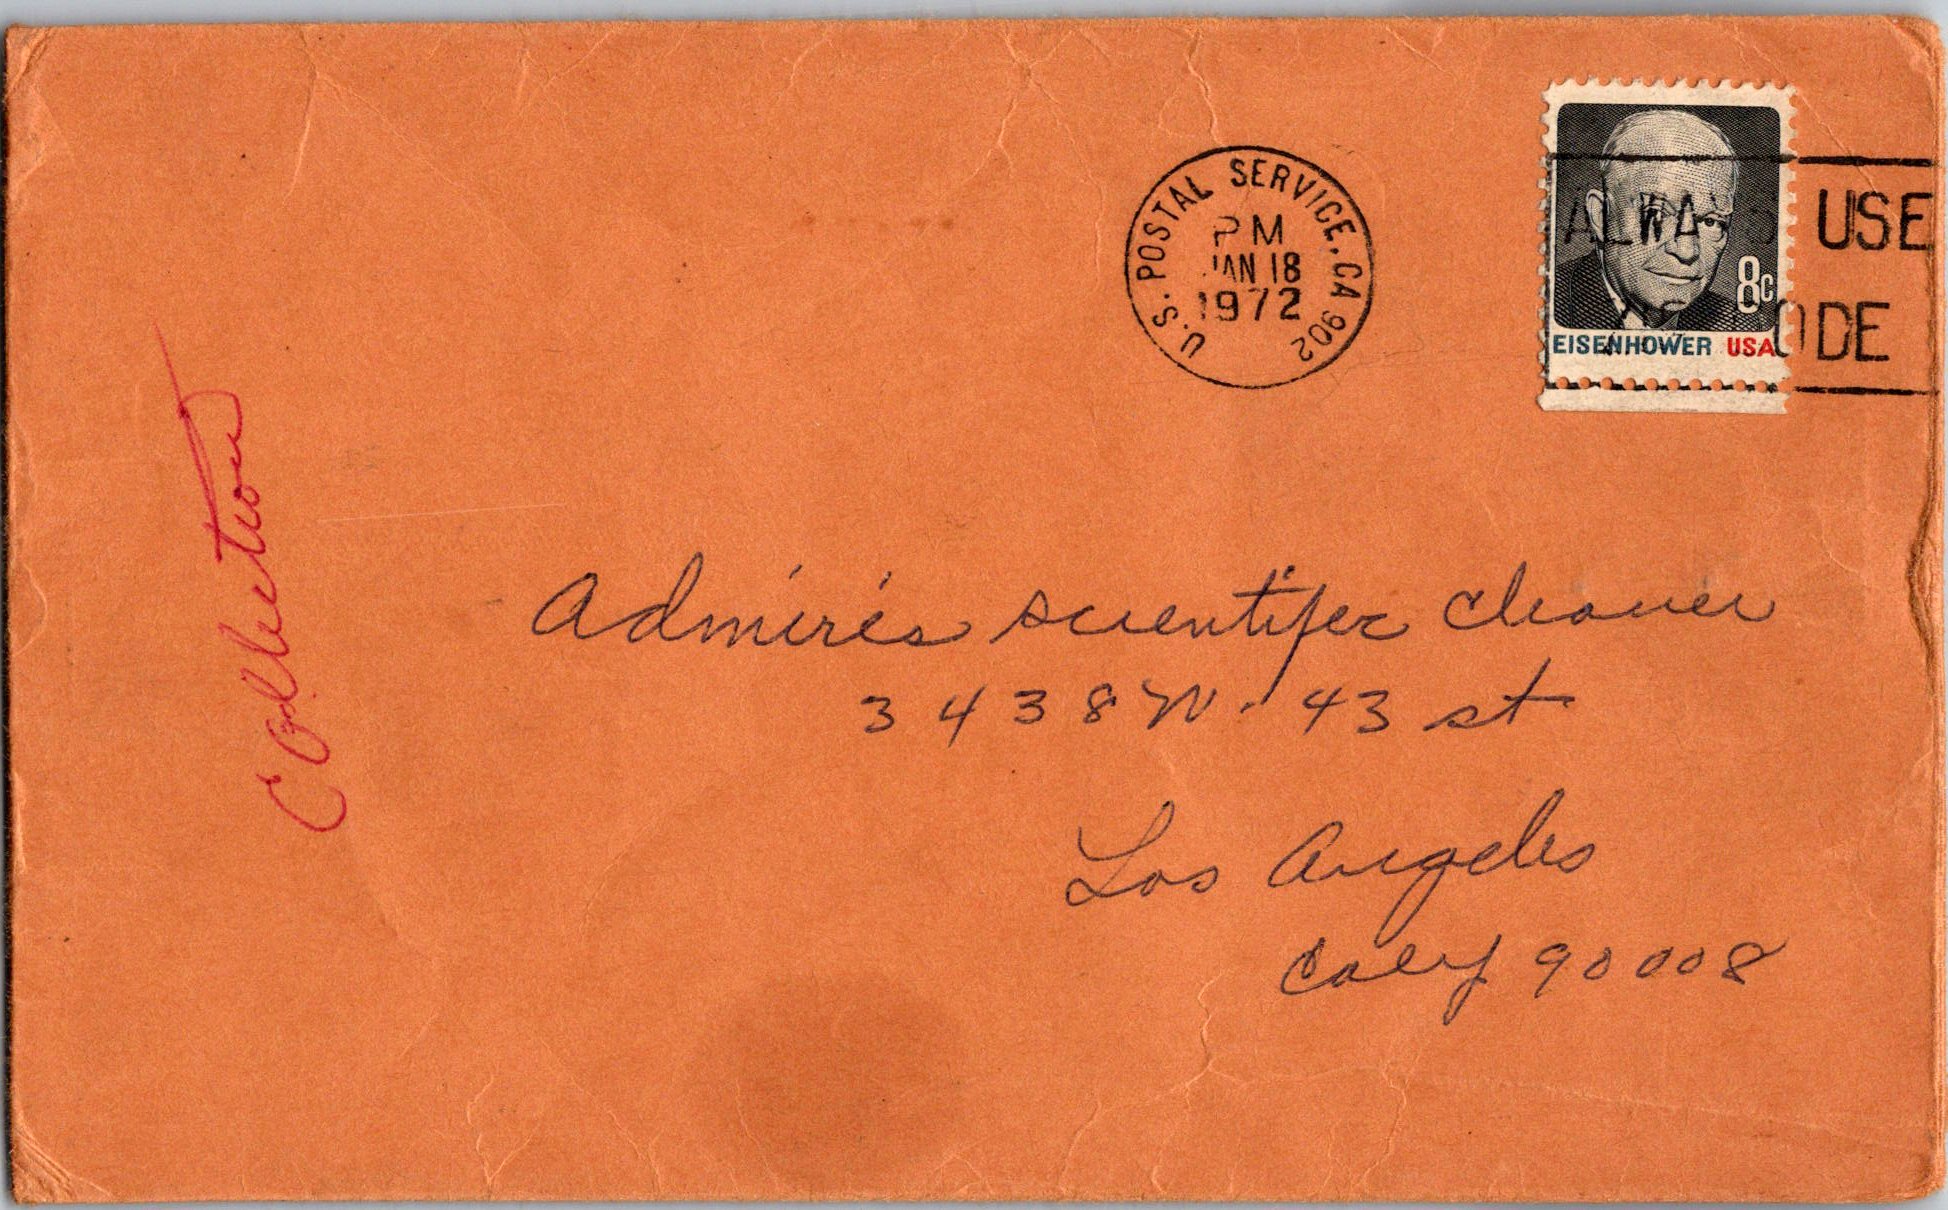 U.S. POSTAL SERVICE, CA 902
PM
JAN 18
1972
ALWAYS USE
ODE
8c
EISENHOWER USA
Collection
Admire's scientific cleaner
3438 W. 43 st
Los Angeles
Calif 90008